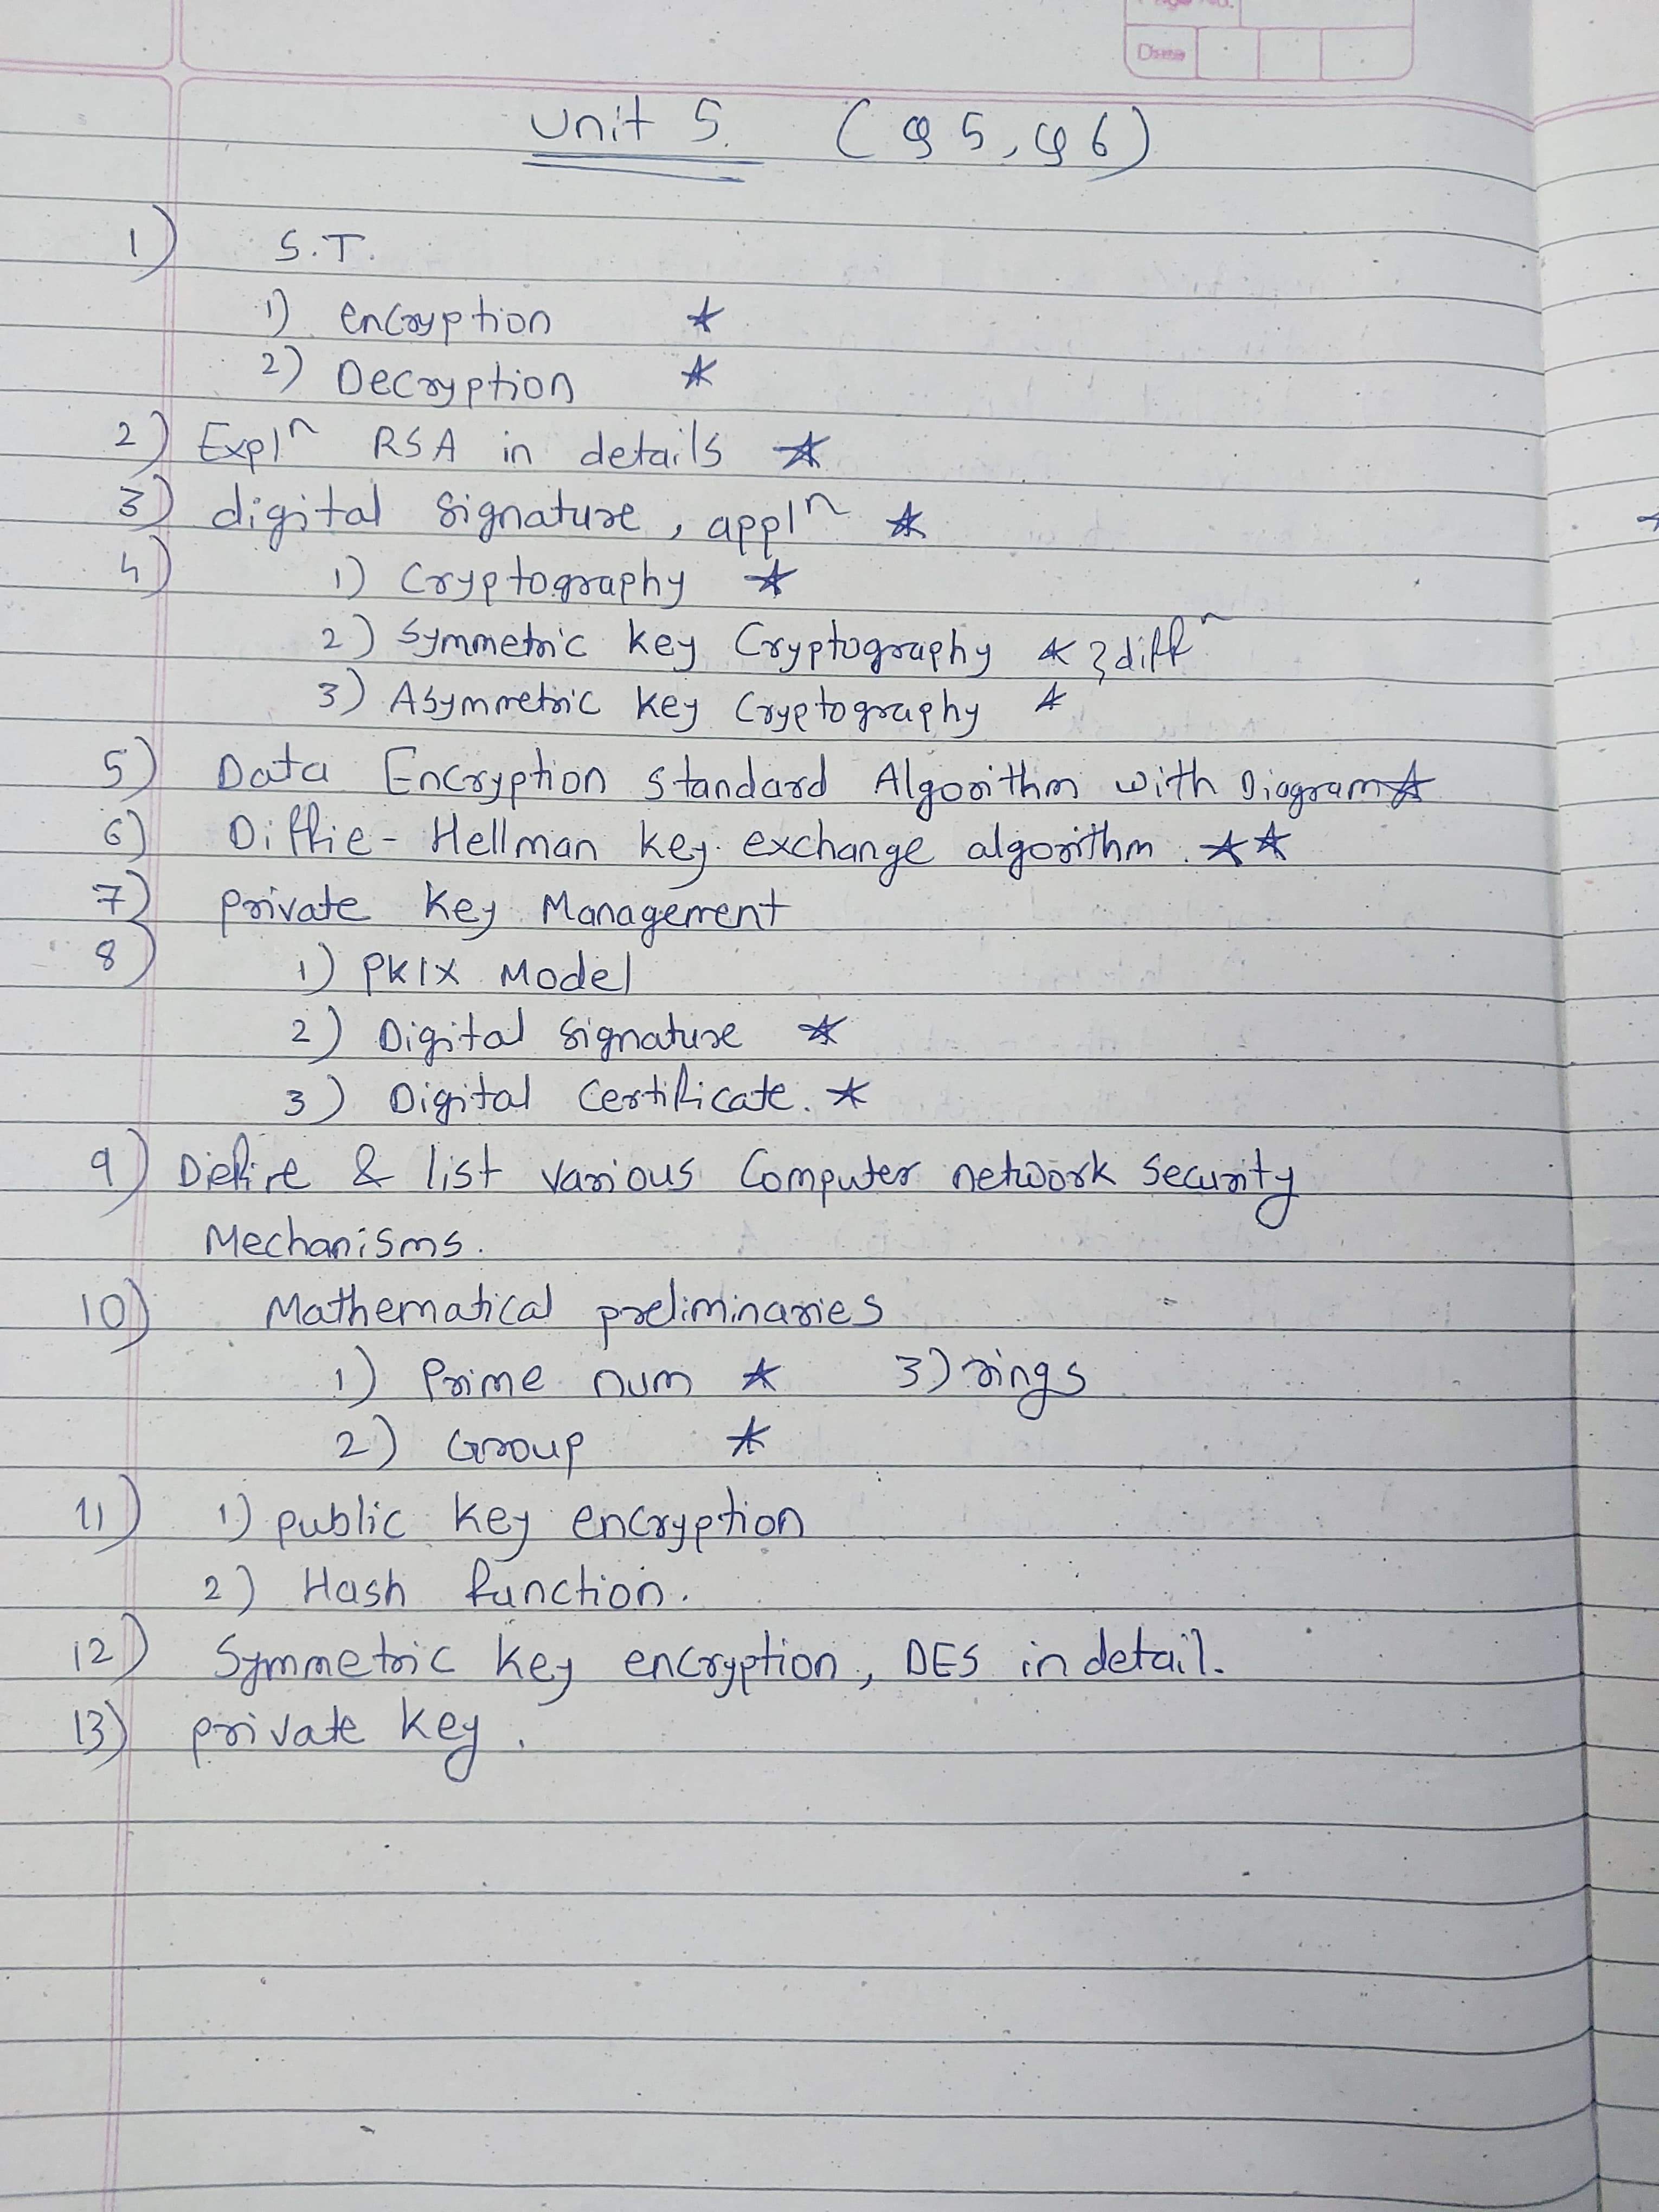 Page No.
Date
Unit 5. (Q5, Q6)
1) S.T.
1) encryption ★
2) Decryption ★
2) Explⁿ RSA in details ★
3) digital signature, applⁿ ★
4) 1) Cryptography ★
2) Symmetric key Cryptography ★ } diffⁿ
3) Asymmetric key Cryptography ★
5) Data Encryption standard Algorithm with Diagram ★
6) Diffie-Hellman key exchange algorithm. ★★
7) private key Management
8) 1) PKIX Model
2) Digital signature ★
3) Digital Certificate. ★
9) Define & list various Computer network Security
Mechanisms.
10) Mathematical preliminaries
1) Prime num ★ 3) rings
2) Group ★
11) 1) public key encryption
2) Hash function.
12) Symmetric key encryption, DES in detail.
13) private key.